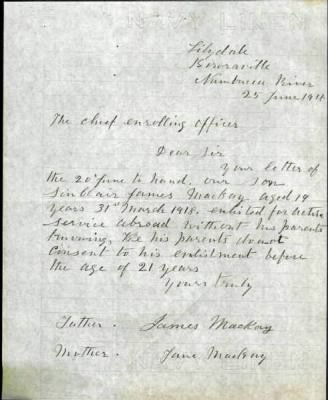 Lilydale
Bowraville
Nambucca River
25 June 1918
The chief enrolling officer
Dear Sir
Your letter of
the 20th June to hand. our son
Sinclair James Mackay aged 19
years 31st March 1918. enlisted for active
service abroad without his parents
knowing, his parents do not
consent to his enlistment before
the age of 21 years
Yours truly
Father. James Mackay
Mother. Jane Mackay